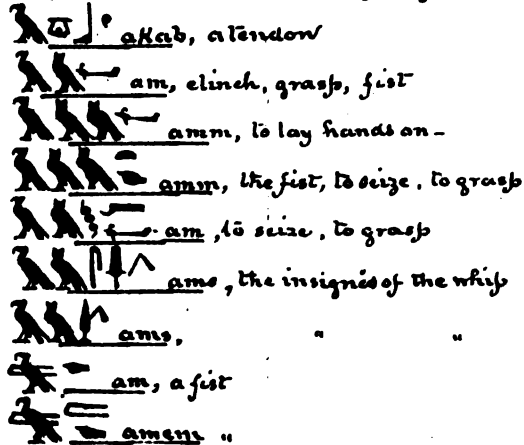 akab, a tendon
am, clinch, grasp, fist
amm, to lay hands on –
amm, the fist, to seize, to grasp
am, to seize, to grasp
ams, the insignés of the whip
ams, " "
am, a fist
amem "